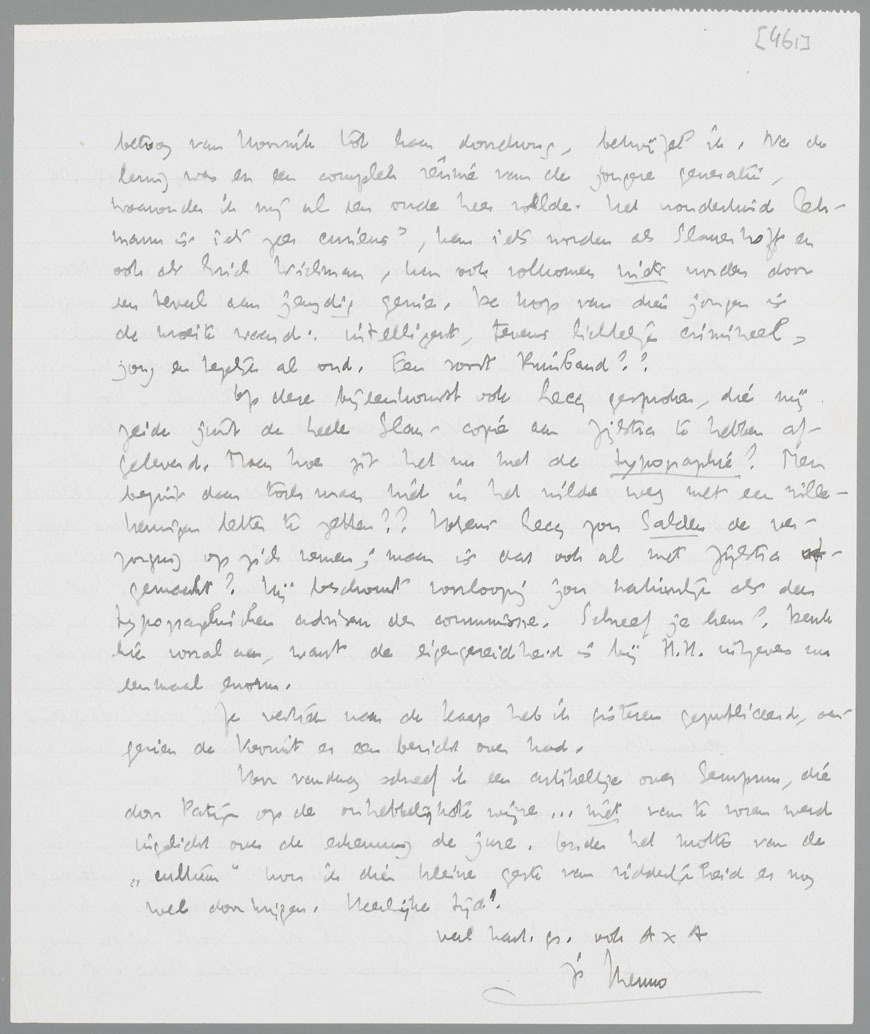 [461]
betoog van Hoornik tot hem doordrong, betwijfel ik. Na de
lezing was er een compleet résumé van de jongere generatie,
waaronder ik mij al een oude heer voelde. Het wonderkind Leh-
mann is iets zeer curieus, kan iets worden als Slauerhoff en
ook als Erich Wichman, kan ook volkomen niets worden door
een teveel aan jeugdig genie. De kop van dien jongen is
de moeite waard: intelligent, tevens lichtelijk crimineel,
jong en tegelijk al oud. Een soort Rimbaud??
Op deze bijeenkomst ook Lecq gesproken, die mij
zeide juist de heele Slau-copie aan Zijlstra te hebben af-
geleverd. Maar hoe zit het nu met de typographie? Men
begint daar toch maar niet in het wilde weg met een wille-
keurigen letter te zetten?? Volgens Lecq zou Salden de ver-
zorging op zich nemen; maar is dat ook al met Zijlstra
gemaakt? Hij beschouwt voorloopig jou natuurlijk als den
typographischen adviseur der commissie. Schreef je hem? Denk
hier vooral aan, want de eigengereidheid is bij H.H. uitgevers nu
eenmaal enorm.
Je vertrek naar de Kaap heb ik gisteren gepubliceerd, aan-
gezien de Vooruit er een bericht over had.
Voor vandaag schreef ik een artikeltje over Semprun, die
door Patijn op de onhebbelijkste wijze... niet van te voren werd
ingelicht over de erkenning de jure. Onder het motto van de
„cultuur" kon ik die kleine geste van ridderlijkheid er nog
wel door krijgen. Heerlijke tijd!
veel hart. gr. ook A x A
je Menno